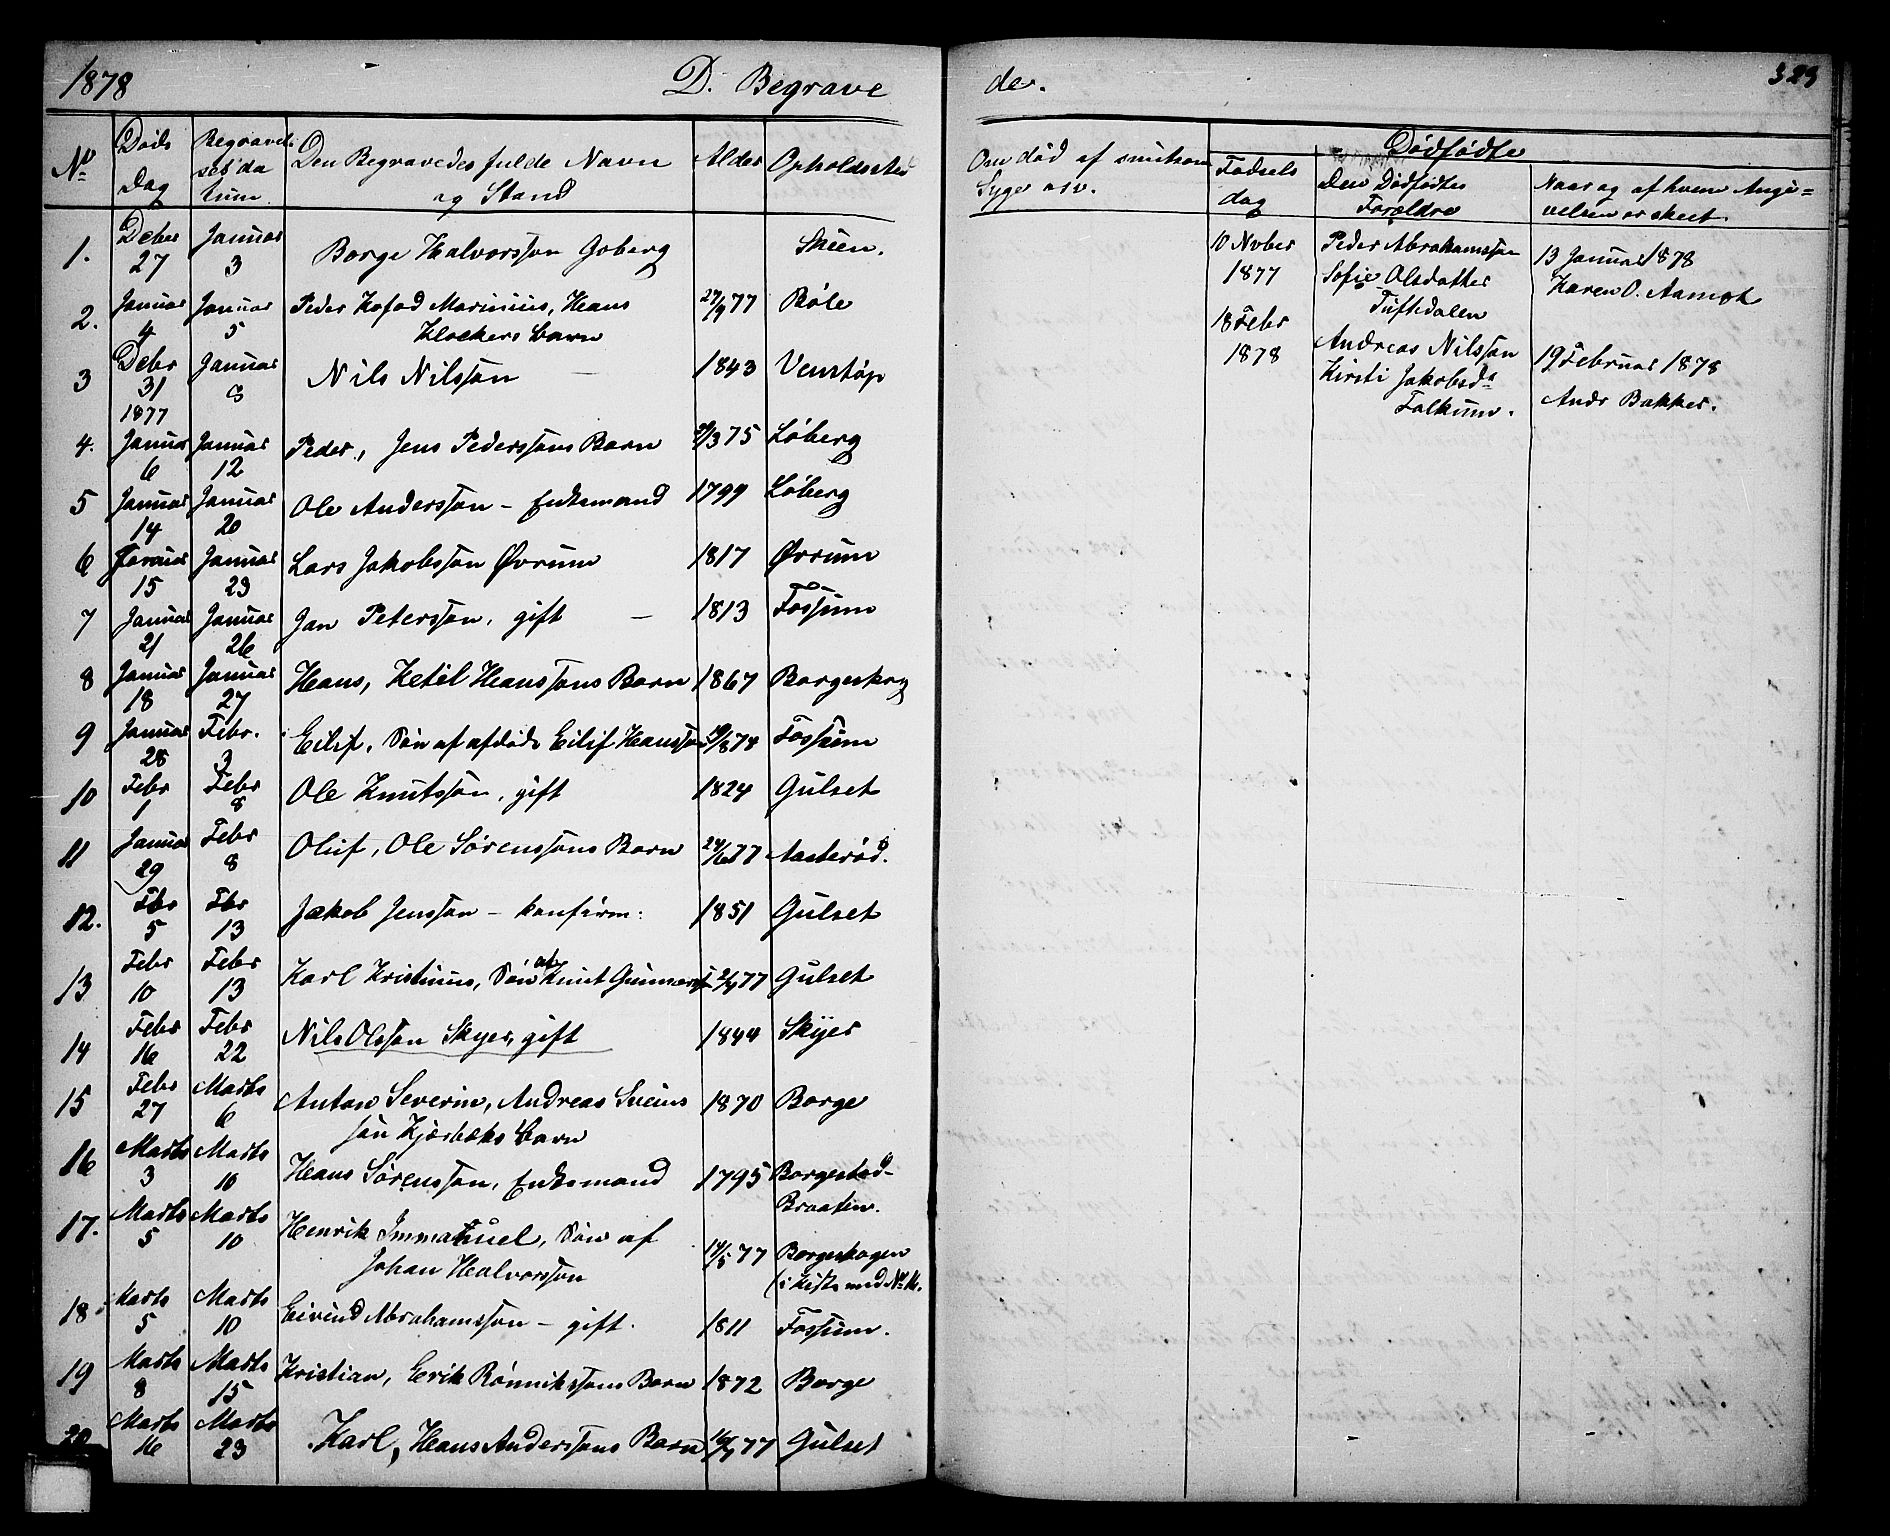 1878
D. Begrave
de.
323
No
Døds Dag
Begravelsesdatum
Den Begravedes fulde Navn og Stand
Alder
Opholdssted
Om død af smitsom Syge osv.
Dødfødte
Fødsels dag
Den Dødfødtes Forældre
Naar og af hvem Angivelsen er skeet
1. Debr 27 Januar 3 Borge Halvorssøn Goberg Skien.
2. Januar 4 Januar 5 Peder Kofod Marinius, Hans Klockers Barn 27/9 77 Bøle
3 Debr 31 1877 Januar 8 Nils Nilssøn — 1843 Venstøp
4. Januar 6 Januar 12 Peder, Jens Pederssøns Barn /3 75 Løberg
5 Januar 14 Januar 20 Ole Anderssøn – Enkemand 1799 Løberg
6 Januar 15 Januar 23 Lars Jakobssøn Øvrum 1817 Øvrum
7 Januar 21 Januar 26 Jan Peterssøn, gift — 1813 Fossum
8 Januar 18 Januar 27 Hans, Ketil Hanssøns Barn 1867 Borgeskog
9 Januar 28 Febr. 3 Eilif, Søn af afdøde Eilif Hanssøn 19/8 74 Fossum
10 Febr 1 Febr 8 Ole Knutssøn, gift 1824 Gulset
11 Januar 29 Febr 8 Oluf, Ole Sørenssøns Barn 24/6 77 Aasterød.
12. Fbr 5 Fbr 13 Jakob Jenssøn – konfirm: 1851 Gulset
13 Febr 10 Febr 13 Karl Kristinus, Søn af Knut Gunnarss 2/4 77 Gulset
14 Febr 16 Febr 22 Nils Olssøn Skyer, gift 1844 Skyer
15 Febr 27 Marts 6 Anton Severin, Andreas Sveins
søn Kjærbæks Barn 1870 Borge
16 Marts 3 Marts 10 Hans Sørenssøn, Enkemand 1795 Borgestad-
Braaten.
17. Marts 5 Marts 10 Henrik Immanuel, Søn af
Johan Halvorssøn 14/5 77 Borgeskogen
(i Kiste med No 16.
18 Marts 5 Marts 10 Eivind Abrahamssøn – gift. 1811 Fossum.
19 Marts 8 Marts 15 Kristian, Erik Rønnikssøns Barn 1872 Borge
20 Marts 16 Marts 23 Karl, Hans Anderssøns Barn 16/7 77 Gulset
10 Nvber 1877 Peder Abrahamssøn
Sofie Olsdatter
Tuftedalen
13 Januar 1878
Karen O. Aamot
18 Febr 1878 Andreas Nilssøn
Kirsti Jakobsdr
Falkum.
19 Februar 1878
Andr Bakker.